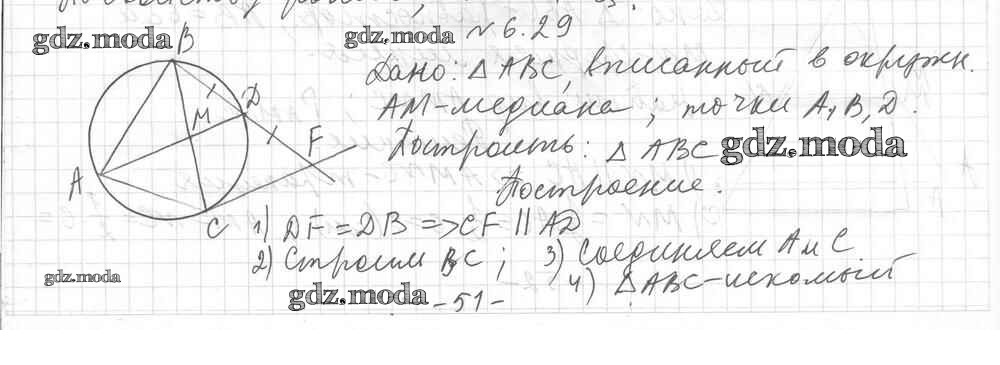 gdz.moda B
gdz.moda № 6.29
Дано: △ABC, вписанный в окружн.
AM-медиана; точки A, B, D.
Построить: △ABC gdz.moda
Построение.
M D F A C
1) DF = DB => CF || AD
2) Строим BC; 3) Соединяем A и C
4) △ABC-искомый
gdz.moda
gdz.moda -51-